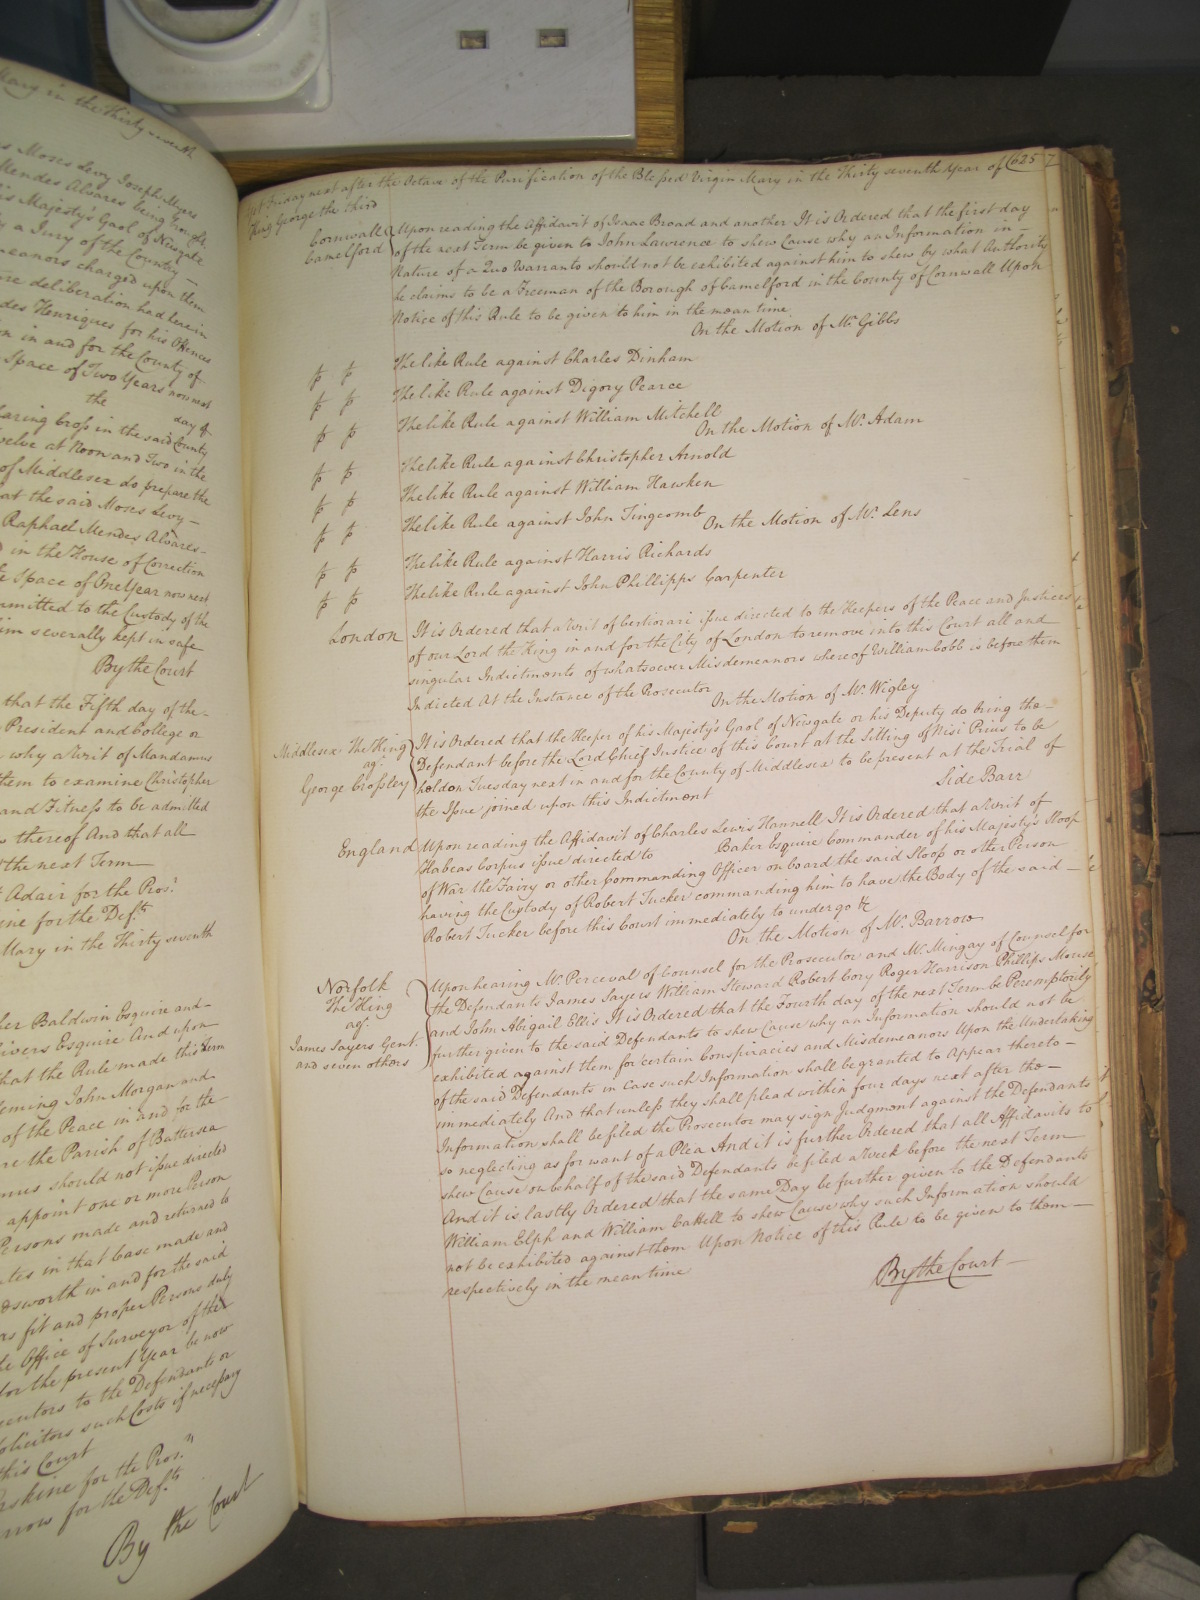 Mary in the Thirty seventh
Moses Levy Joseph Myers
Mendes Alvares being brought
his Majesty's Gaol of Newgate
by a Jury of the Country
meanors charged upon them
deliberation had herein
des Henriques for his Offences
on in and for the County of
Space of Two Years now next
the day of
Charing Cross in the said County
twelve at Noon and Two in the
of Middlesex do prepare the
that the said Moses Levy
Raphael Mendes Alvares
in the House of Correction
Space of One Year now next
committed to the Custody of the
him severally kept in safe
By the Court
that the Fifth day of the
President and College or
why a Writ of Mandamus
them to examine Christopher
and Fitness to be admitted
thereof And that all
the next Term
Adair for the Pros.r
for the Def.ts
Mary in the Thirty seventh
Baldwin Esquire and
Esquire And upon
that the Rule made this Term
Fleming John Morgan and
of the Peace in and for the
the Parish of Battersea
should not issue directed
appoint one or more Person
Persons made and returned to
in that Case made and
in and for the said
as fit and proper Persons duly
the Office of Surveyor of the
for the present Year be now
to the Defendants or
Solicitors such Costs if necessary
this Court
Erskine for the Pros.rs
for the Def.ts
By the Court
Friday next after the Octave of the Purification of the Blessed Virgin Mary in the Thirty seventh Year of 625
King George the third
Cornwall Upon reading the Affidavit of Isaac Broad and another It is Ordered that the first day
Camelford of the next Term be given to John Lawrence to shew Cause why an Information in
Nature of a Quo Warranto should not be exhibited against him to shew by what Authority
he claims to be a Freeman of the Borough of Camelford in the County of Cornwall Upon
Notice of this Rule to be given to him in the mean time
On the Motion of Mr. Gibbs
The like Rule against Charles Dinham
The like Rule against Digory Pearce
The like Rule against William Mitchell
On the Motion of Mr. Adam
The like Rule against Christopher Arnold
The like Rule against William Hawken
The like Rule against John Tingcomb
On the Motion of Mr. Lens
The like Rule against Harris Richards
The like Rule against John Phillipps Carpenter
London It is Ordered that a Writ of Certiorari issue directed to the Keepers of the Peace and Justices
of our Lord the King in and for the City of London to remove into this Court all and
singular Indictments of whatsoever Misdemeanors whereof William Cobb is before them
Indicted At the Instance of the Prosecutor
On the Motion of Mr. Wigley
Middlesex The King It is Ordered that the Keeper of his Majesty's Gaol of Newgate or his Deputy do bring the
ag.t Defendant before the Lord Chief Justice of this Court at the Sitting of Nisi Prius to be
George Crossley holden Tuesday next in and for the County of Middlesex to be present at the Trial of
the Issue joined upon this Indictment
Side Barr
England Upon reading the Affidavit of Charles Lewis Hannell It is Ordered that a Writ of
Habeas Corpus issue directed to Baker Esquire Commander of his Majesty's Sloop
of War the Fairy or other Commanding Officer on board the said Sloop or other Person
having the Custody of Robert Tucker commanding him to have the Body of the said
Robert Tucker before this Court immediately to undergo &c
On the Motion of Mr. Barrow
Norfolk Upon hearing Mr. Perceval of Counsel for the Prosecutor and Mr. Mingay of Counsel for
The King the Defendants James Sayers William Steward Robert Cory Roger Harrison Phillips Mouse
ag.t and John Abigail Ellis It is Ordered that the Fourth day of the next Term be Peremptorily
James Sayers Gent. further given to the said Defendants to shew Cause why an Information should not be
and seven others exhibited against them for certain Conspiracies and Misdemeanors Upon the Undertaking
of the said Defendants in Case such Information shall be granted to Appear thereto
immediately And that unless they shall plead within four days next after the
Information shall be filed the Prosecutor may sign Judgment against the Defendants
so neglecting as for want of a Plea And it is further Ordered that all Affidavits to
shew Cause on behalf of the said Defendants be filed a Week before the next Term
And it is lastly Ordered that the same Day be further given to the Defendants
William Elph and William Cattell to shew Cause why such Information should
not be exhibited against them Upon Notice of this Rule to be given to them
respectively in the mean time
By the Court